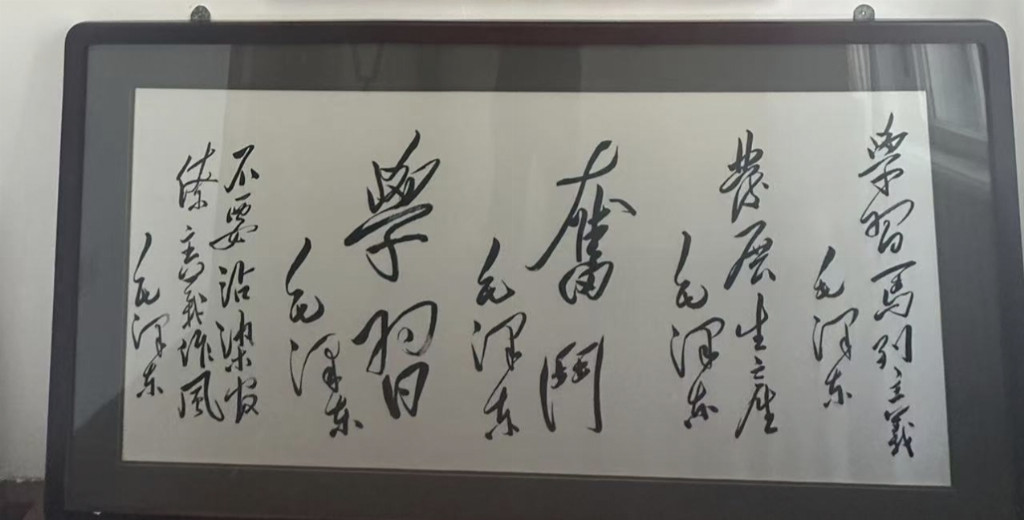 學習馬列主義
毛澤东
發展生産
毛澤东
奮鬥
毛澤东
學習
毛澤东
不要沾染官
僚主義作風
毛澤东